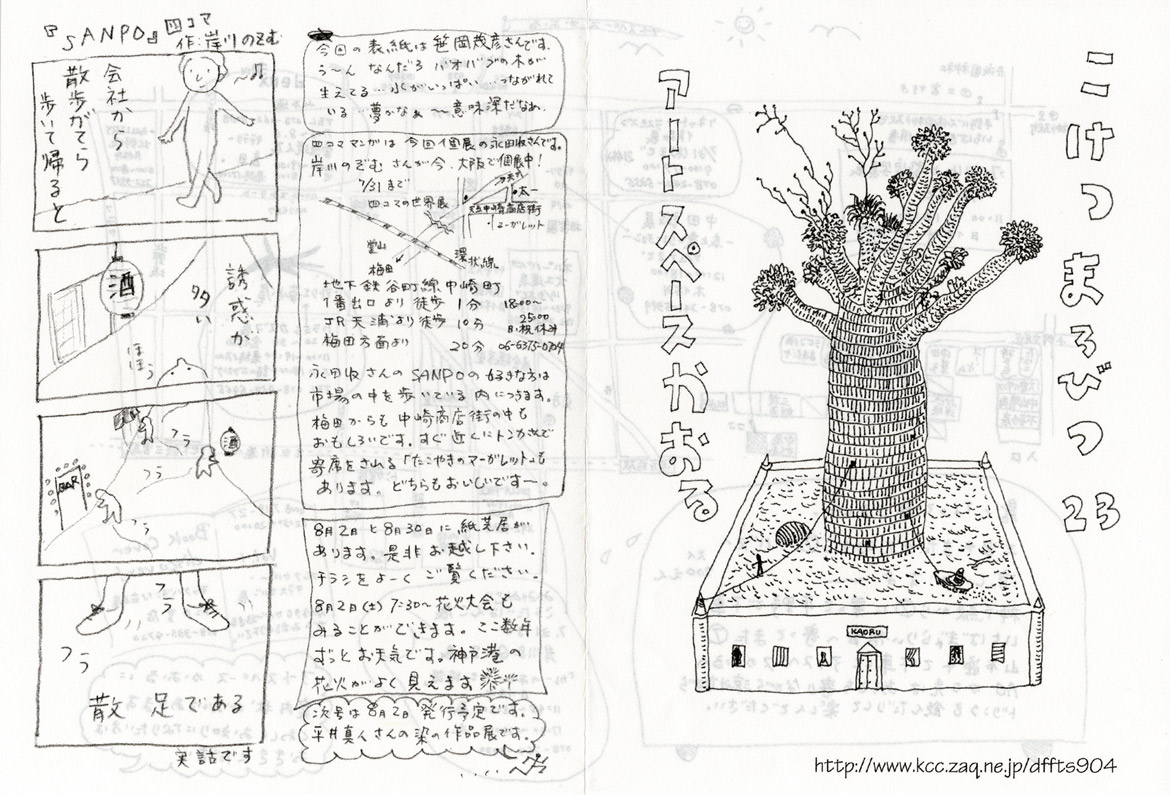 『SANPO』四コマ
作:岸川のぞむ
会社から
散歩がてら
歩いて帰ると
誘惑が
多い
酒
ほほぅ
フラ
フラ
フラ
酒
BAR
フラ
フラ
散足である
実話です
今回の表紙は笹岡茂彦さんです。
う〜ん なんだろ バオバブの木が
生えてる…水がいっぱい…つながれて
いる…夢かなぁ〜〜意味深だなぁ。
四コママンガは今回個展の永田収さんです。
岸川のぞむさんが今、大阪で個展中!
7/31まで
四コマの世界展
太一
中崎商店街
マーガレット
堂山
梅田
環状線
地下鉄谷町線中崎町
1番出口より徒歩1分
JR天満より徒歩10分
梅田方面より 20分
18:00〜
25:00
日・祝休み
06-6375-0704
永田収さんのSANPOの好きな方は
市場の中を歩いている内につきます。
梅田からも中崎商店街の中も
おもしろいです。すぐ近くにトンカさんで
寄席をされる「たこやきのマーガレット」も
あります。どちらもおいしいです〜。
8月2日と8月30日に紙芝居が
あります。是非お越し下さい。
チラシをよーくご覧ください。
8月2日(土)7:30〜花火大会も
みることができます。ここ数年
ずっとお天気です。神戸港の
花火がよく見えます
次号は8月2日発行予定です。
平井真人さんの染の作品展です。
こけつまろびつ 23
アートスペースかおる
KAORU
http://www.kcc.zaq.ne.jp/dffts904